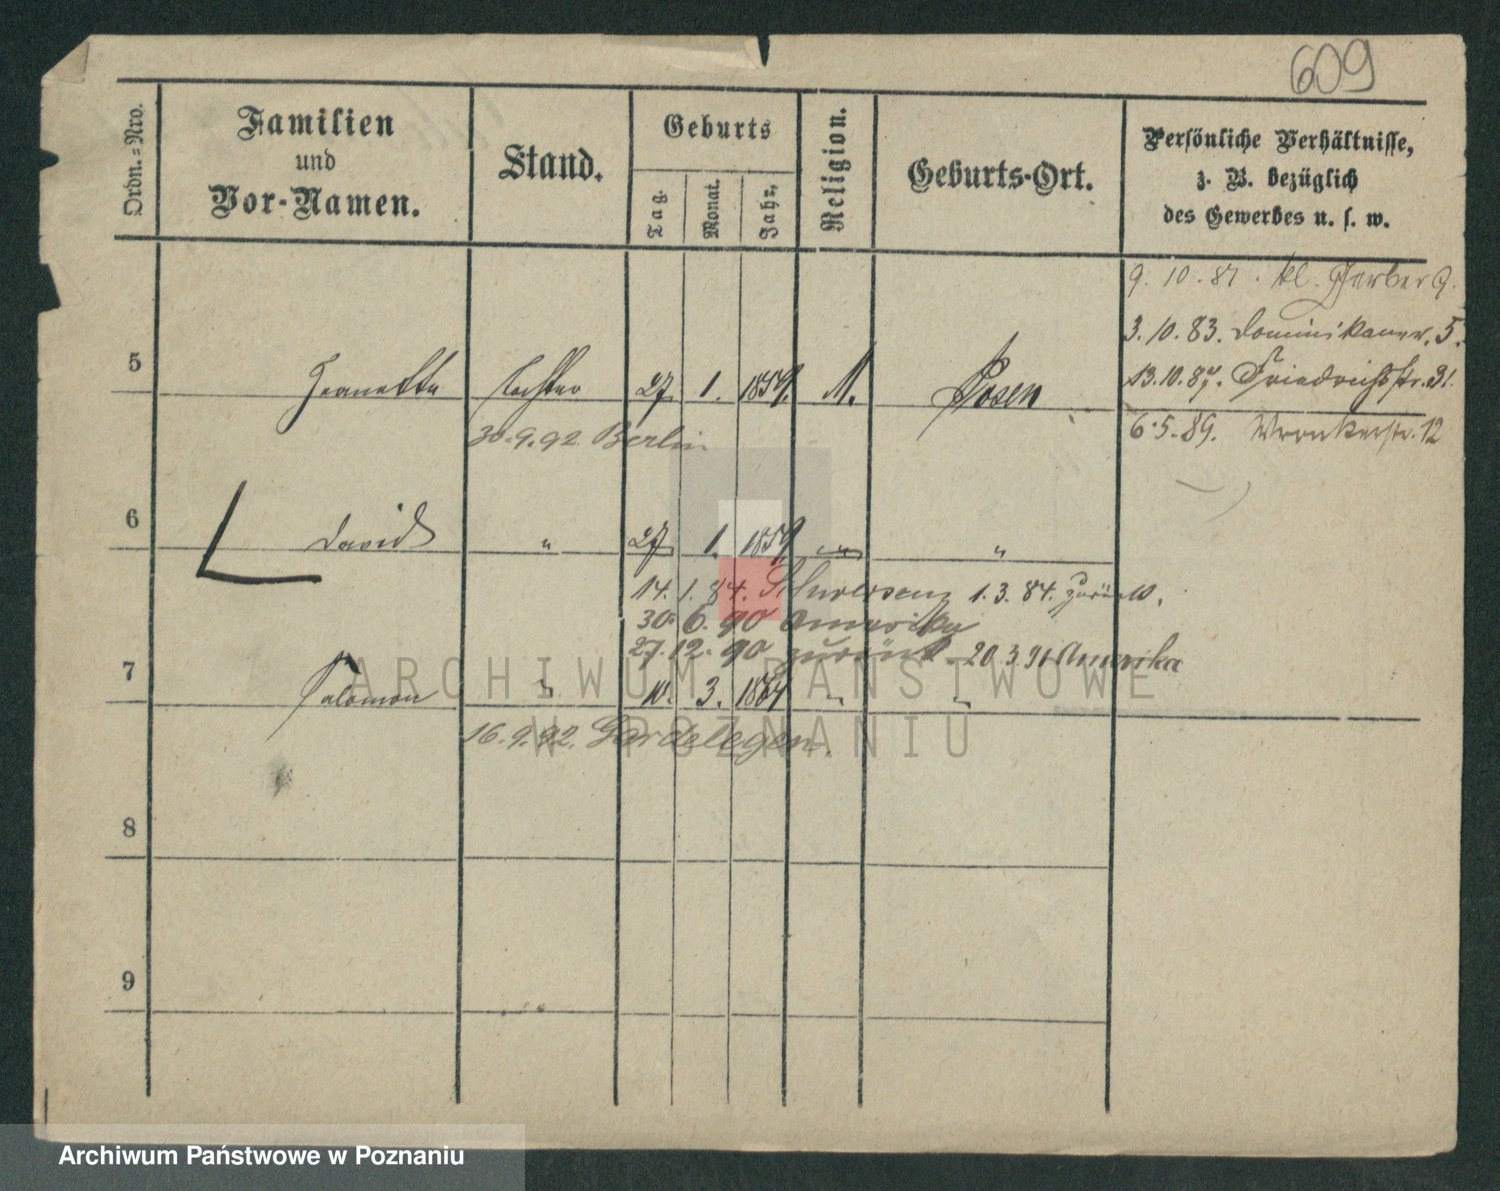 609
Ordn.-Nro.
Familien
und
Vor-Namen.
Stand.
Geburts
Tag.
Monat.
Jahr.
Religion.
Geburts-Ort.
Persönliche Verhältnisse,
z. B. bezüglich
des Gewerbes u. s. w.
9. 10. 81. kl. Gerber 9.
3. 10. 83. Dominikaner. 5.
13. 10. 87. Friedrichstr. 31.
5 Jeanette Tochter 27. 1. 1859. M. Posen
30. 9. 92 Berlin
6. 5. 89. Wronkerstr. 12
6 David " 27. 1. 1859 " "
14. 1. 84. Schwersenz 1. 3. 84. zurück.
30. 6. 90 Amerika
27. 12. 90 zurück. 20. 3. 91 Amerika
ARCHIWUM PAŃSTWOWE
7 Salomon " 10. 3. 1864 " "
16. 9. 92. Gardelegen.
W POZNANIU
8
9
Archiwum Państwowe w Poznaniu